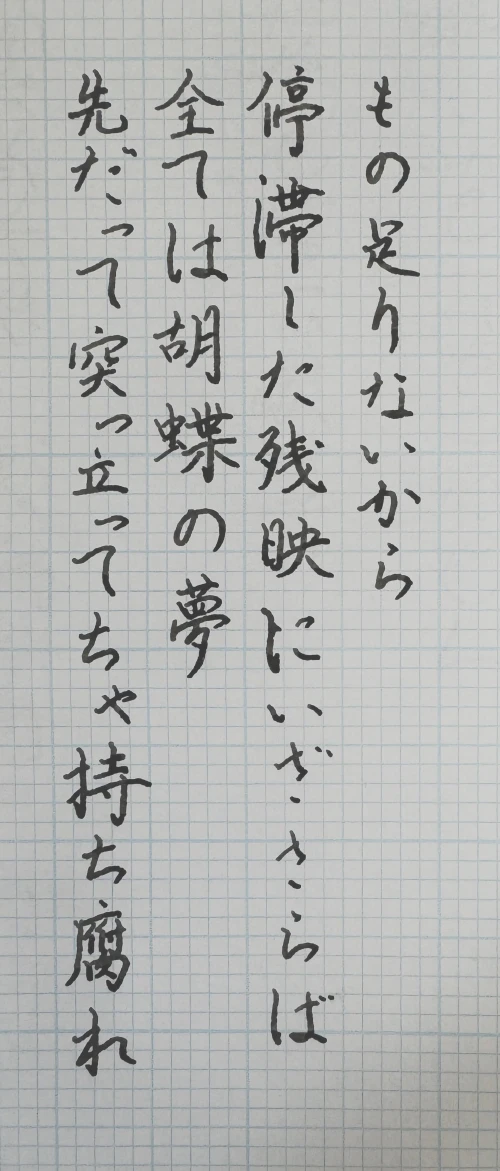 もの足りないから
停滞した残映にいざさらば
全ては胡蝶の夢
先だって突っ立ってちゃ持ち腐れ